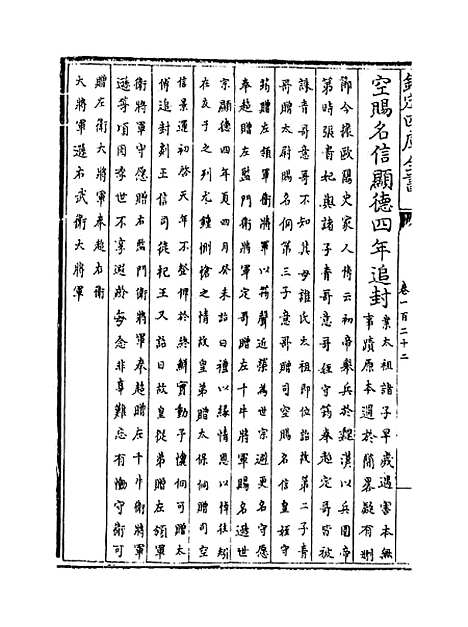 欽定四庫全書
卷一百二十二
空賜名信顯德四年追封
案太祖諸子早歲遇害本無
事蹟原本過於簡畧疑有刪
節今據歐陽史家人傳云初帝舉兵於魏漢以兵圍帝
第時張貴妃與諸子青哥意哥姪守筠奉超定哥皆被
誅青哥意哥不知其母誰氏太祖即位詔故第二子青
哥贈太尉賜名侗第三子意哥贈司空賜名信皇姪守
筠贈左領軍衛將軍以筠聲近榮為世宗避更名守愿
奉超贈左監門衛將軍定哥贈左千牛將軍賜名遜世
宗顯德四年夏四月癸未詔曰禮以緣情恩以悼往矧
在友于之列尤鍾惻愴之情故皇弟贈太保侗贈司空
信景運初啓天年不登俾於終鮮實動予懷侗可贈太
傅追封剡王信司徒杞王又詔曰故皇從弟贈左領軍
衛將軍守愿贈右監門衛將軍奉超贈左千牛衛將軍
遜等頃因季世不享遐齡每念非辜難忘有慟守衛可
贈左衛大將軍奉超右衛
大將軍遜右武衛大將軍